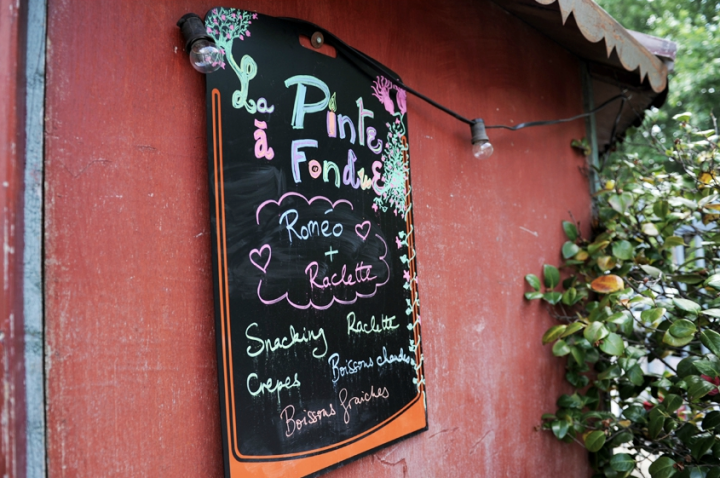 La Pinte
à Fondue
Roméo
+
Raclette
Snacking Raclette
Crêpes Boissons chaudes
Boissons fraiches